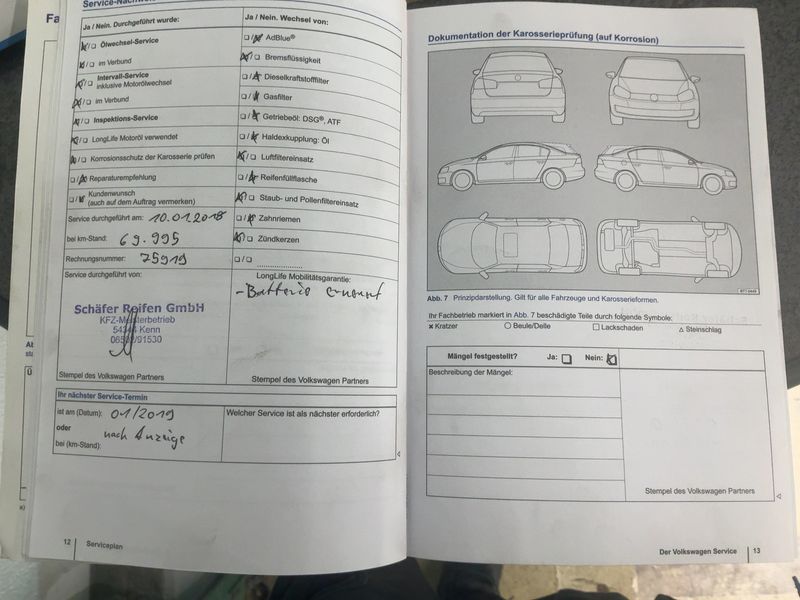 Fa
Service-Nachweis
Ja / Nein. Durchgeführt wurde:
Ölwechsel-Service
im Verbund
Intervall-Service
inklusive Motorölwechsel
im Verbund
Inspektions-Service
LongLife Motoröl verwendet
Korrosionsschutz der Karosserie prüfen
Reparaturempfehlung
Kundenwunsch
(auch auf dem Auftrag vermerken)
Service durchgeführt am: 10.01.2018
bei km-Stand: 69.995
Rechnungsnummer: 75919
Service durchgeführt von:
Schäfer Reifen GmbH
KFZ-Meisterbetrieb
54344 Kenn
06502/91530
Stempel des Volkswagen Partners
Ja / Nein. Wechsel von:
AdBlue®
Bremsflüssigkeit
Dieselkraftstofffilter
Gasfilter
Getriebeöl: DSG®, ATF
Haldexkupplung: Öl
Luftfiltereinsatz
Reifenfüllflasche
Staub- und Pollenfiltereinsatz
Zahnriemen
Zündkerzen
LongLife Mobilitätsgarantie:
- Batterie erneuert
Stempel des Volkswagen Partners
Ihr nächster Service-Termin
ist am (Datum): 01/2019
oder nach Anzeige
bei (km-Stand):
Welcher Service ist als nächster erforderlich?
12 Serviceplan
Dokumentation der Karosserieprüfung (auf Korrosion)
Abb. 7 Prinzipdarstellung. Gilt für alle Fahrzeuge und Karosserieformen.
Ihr Fachbetrieb markiert in Abb. 7 beschädigte Teile durch folgende Symbole:
Kratzer Beule/Delle Lackschaden Steinschlag
Mängel festgestellt? Ja: Nein:
Beschreibung der Mängel:
Stempel des Volkswagen Partners
Der Volkswagen Service 13